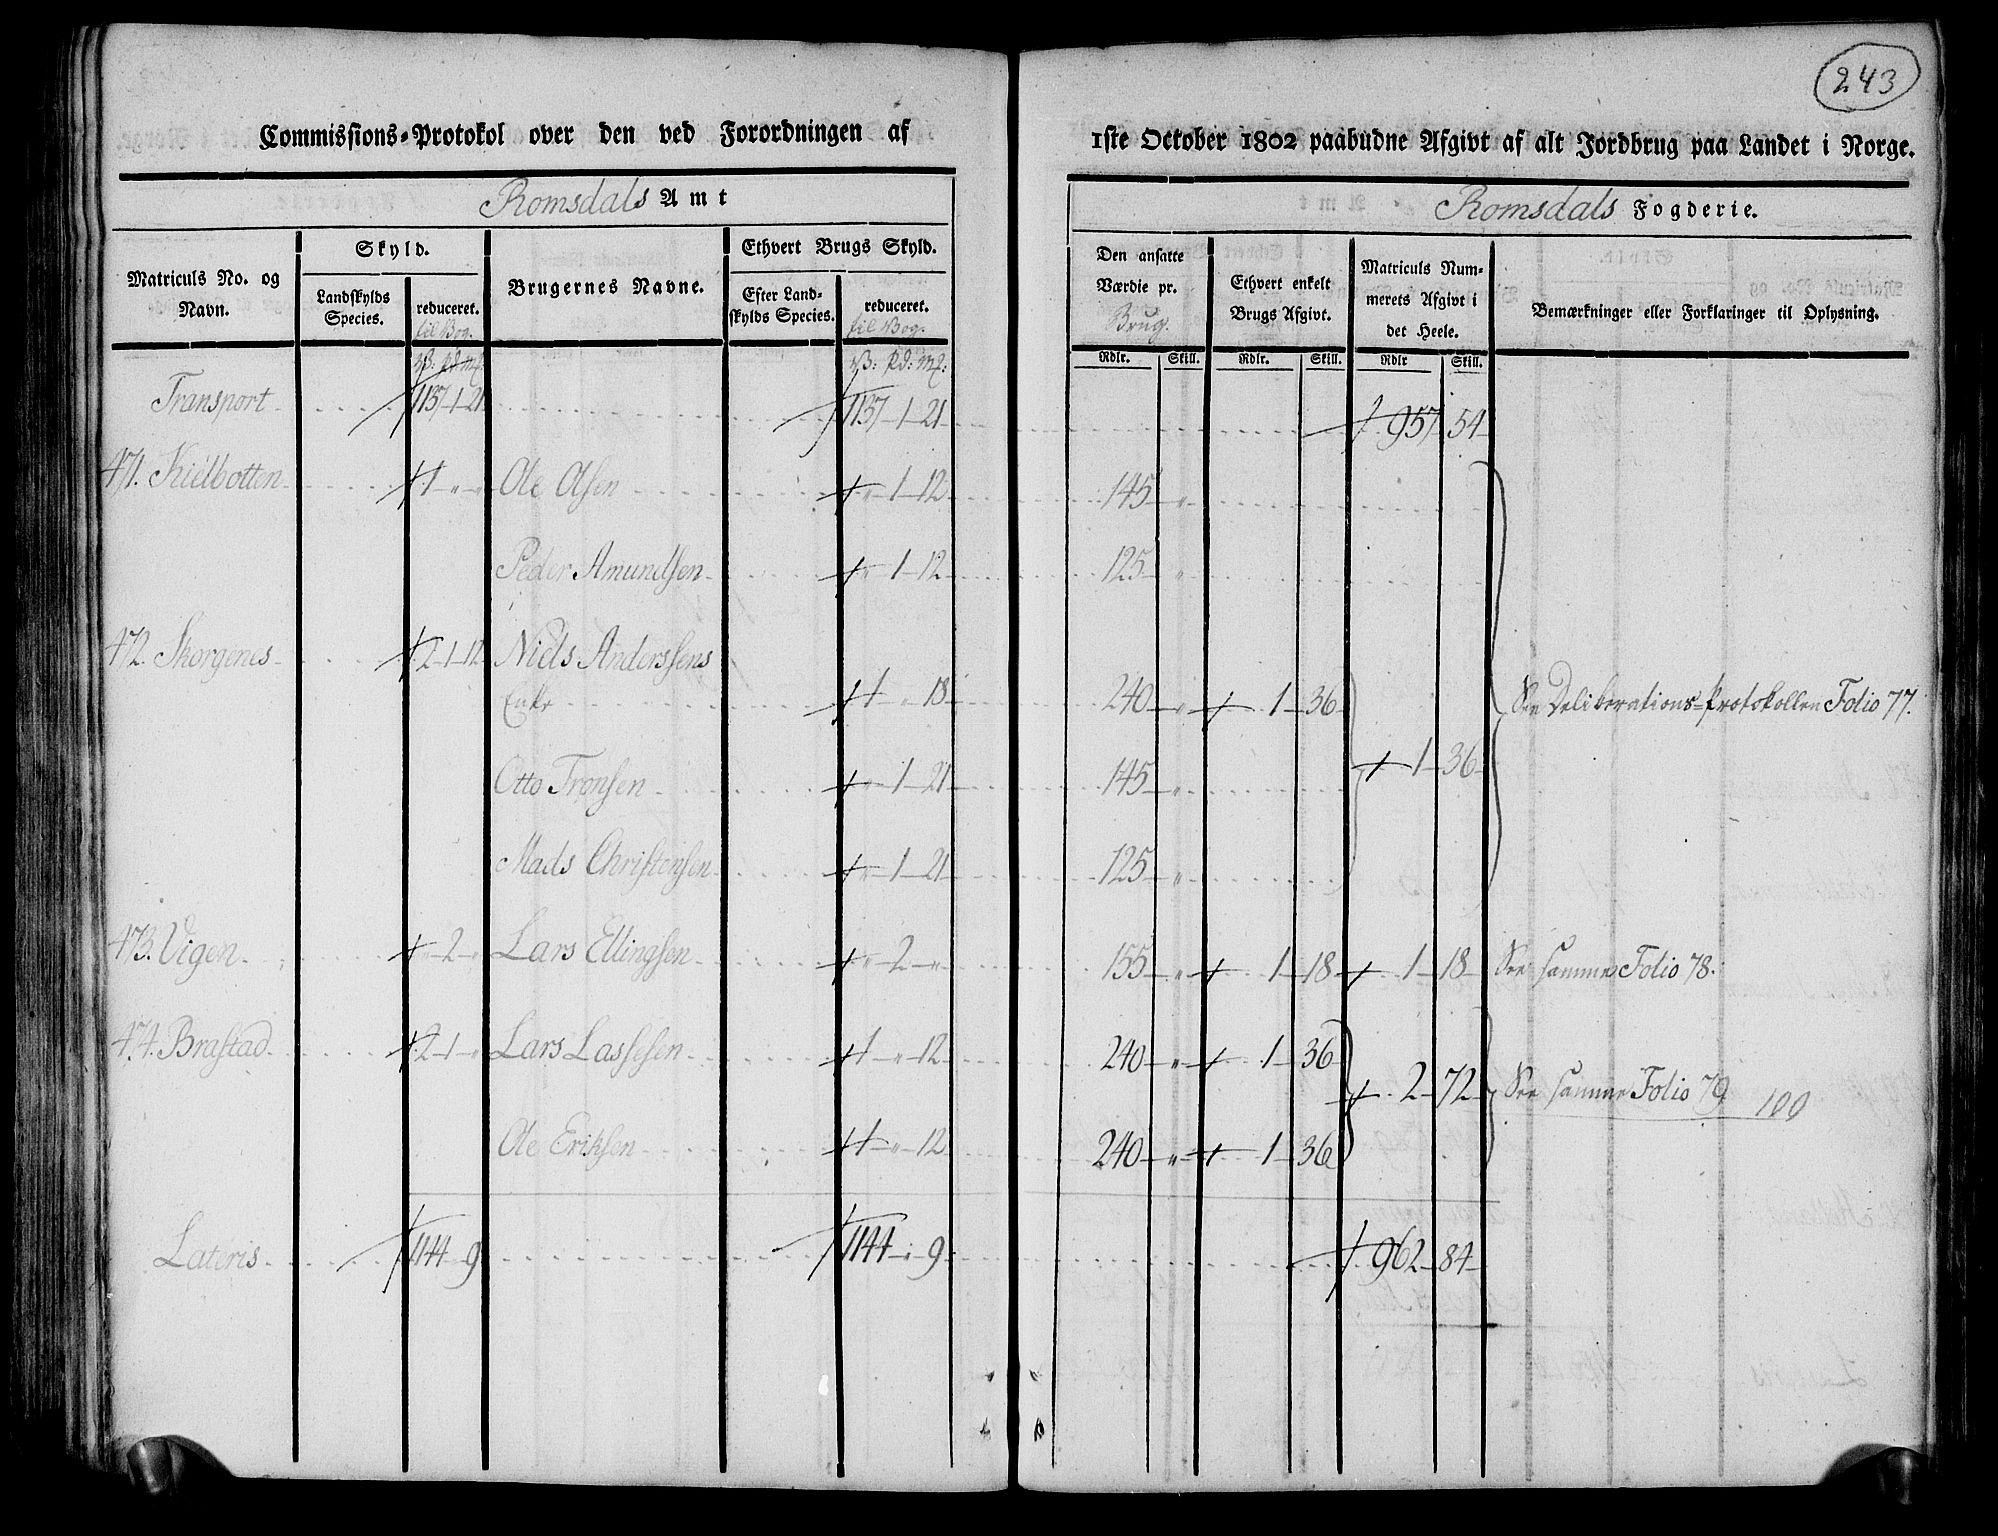 243
Commissions-Protokol over den ved Forordningen af 1ste October 1802 paabudne Afgivt af alt Jordbrug paa Landet i Norge.
Romsdals Amt
Romsdals Fogderie.
Matriculs No. og Navn.
Skyld.
Landskylds Species.
reduceret. til Vog.
Brugernes Navne.
Ethvert Brugs Skyld.
Efter Landskylds Species.
reduceret. til Vog.
Den ansatte Værdie pr. Brug.
Ethvert enkelt Brugs Afgivt.
Matriculs Nummerets Afgivt i det Heele.
Bemærkninger eller Forklaringer til Oplysning.
Rdlr. Skill. Rdlr. Skill. Rdlr Skill.
Transport 1137-1-21 1137-1-21 957 54
471. Kielbotten 1 " " Ole Olsen " 1-12 145 "
Peder Amundsen " 1-12 125 "
472. Skorgenes 2-1-12 Niels Anderssens
Enke 1 " 18 240 " 1-36 See Deliberations-Protokollen Folio 77.
Otto Tronsen " 1-21 145 " 1-36
Mads Christensen " 1-21 125 "
473. Vigen " 2 " Lars Ellingsen " 2 " 155 " 1-18 1-18 See samme Folio 78.
474. Brastad 2-1 " Lars Lassesen 1 " 12 240 " 1-36
2-72 See samme Folio 79 100
Ole Eriksen 1 " 12 240 " 1-36
Lateris 1144 " 9 1144 " 9 962-84